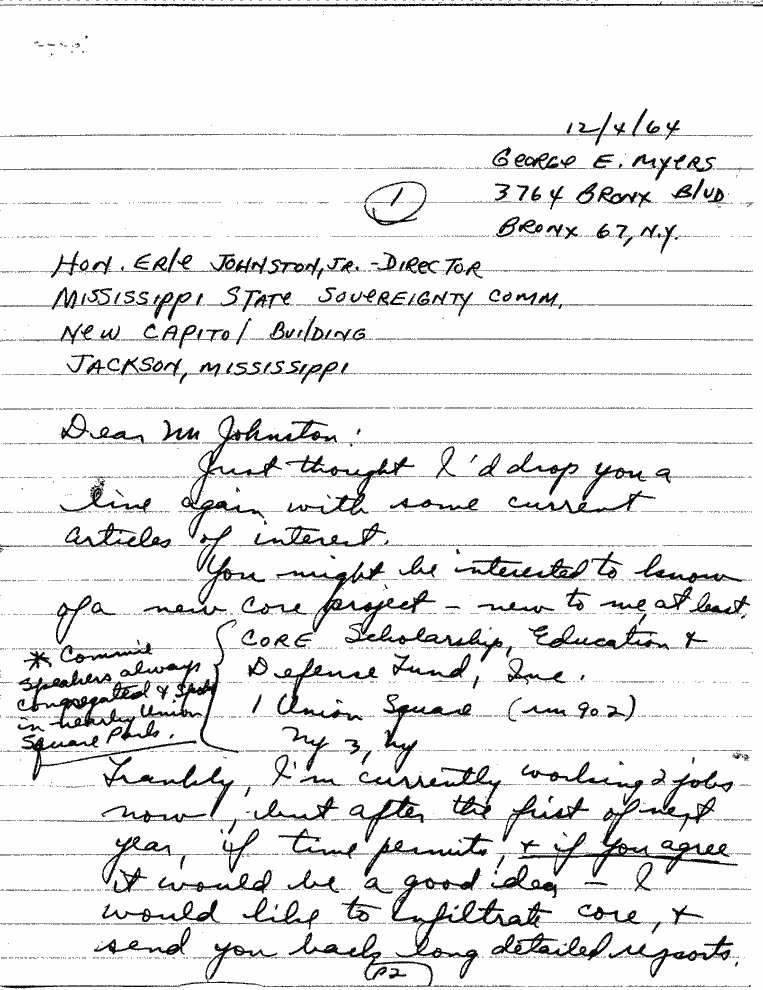 12/4/64
George E. Myers
3764 Bronx Blvd
Bronx 67, N.Y.
1
Hon. Erle Johnston, Jr. - Director
Mississippi State Sovereignty Comm.
New Capitol Building
Jackson, Mississippi
Dear Mr Johnston:
Just thought I'd drop you a
line again with some current
articles of interest.
You might be interested to know
of a new Core project - new to me, at least.
CORE Scholarship, Education &
Defense Fund, Inc.
1 Union Square (rm 902)
NY 3, NY
* Commie
speakers always
congregated & spoke
in nearby Union
Square Park.
Frankly, I'm currently working 2 jobs
now, but after the first of next
year, if time permits, & if you agree
it would be a good idea - I
would like to infiltrate core, &
send you back long detailed reports.
P2